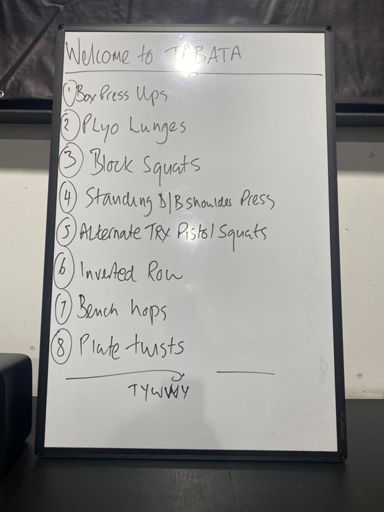 Welcome to TABATA
1 Box Press Ups
2 Plyo Lunges
3 Block Squats
4 Standing D/B shoulder Press
5 Alternate TRX Pistol Squats
6 Inverted Row
7 Bench hops
8 Plate twists